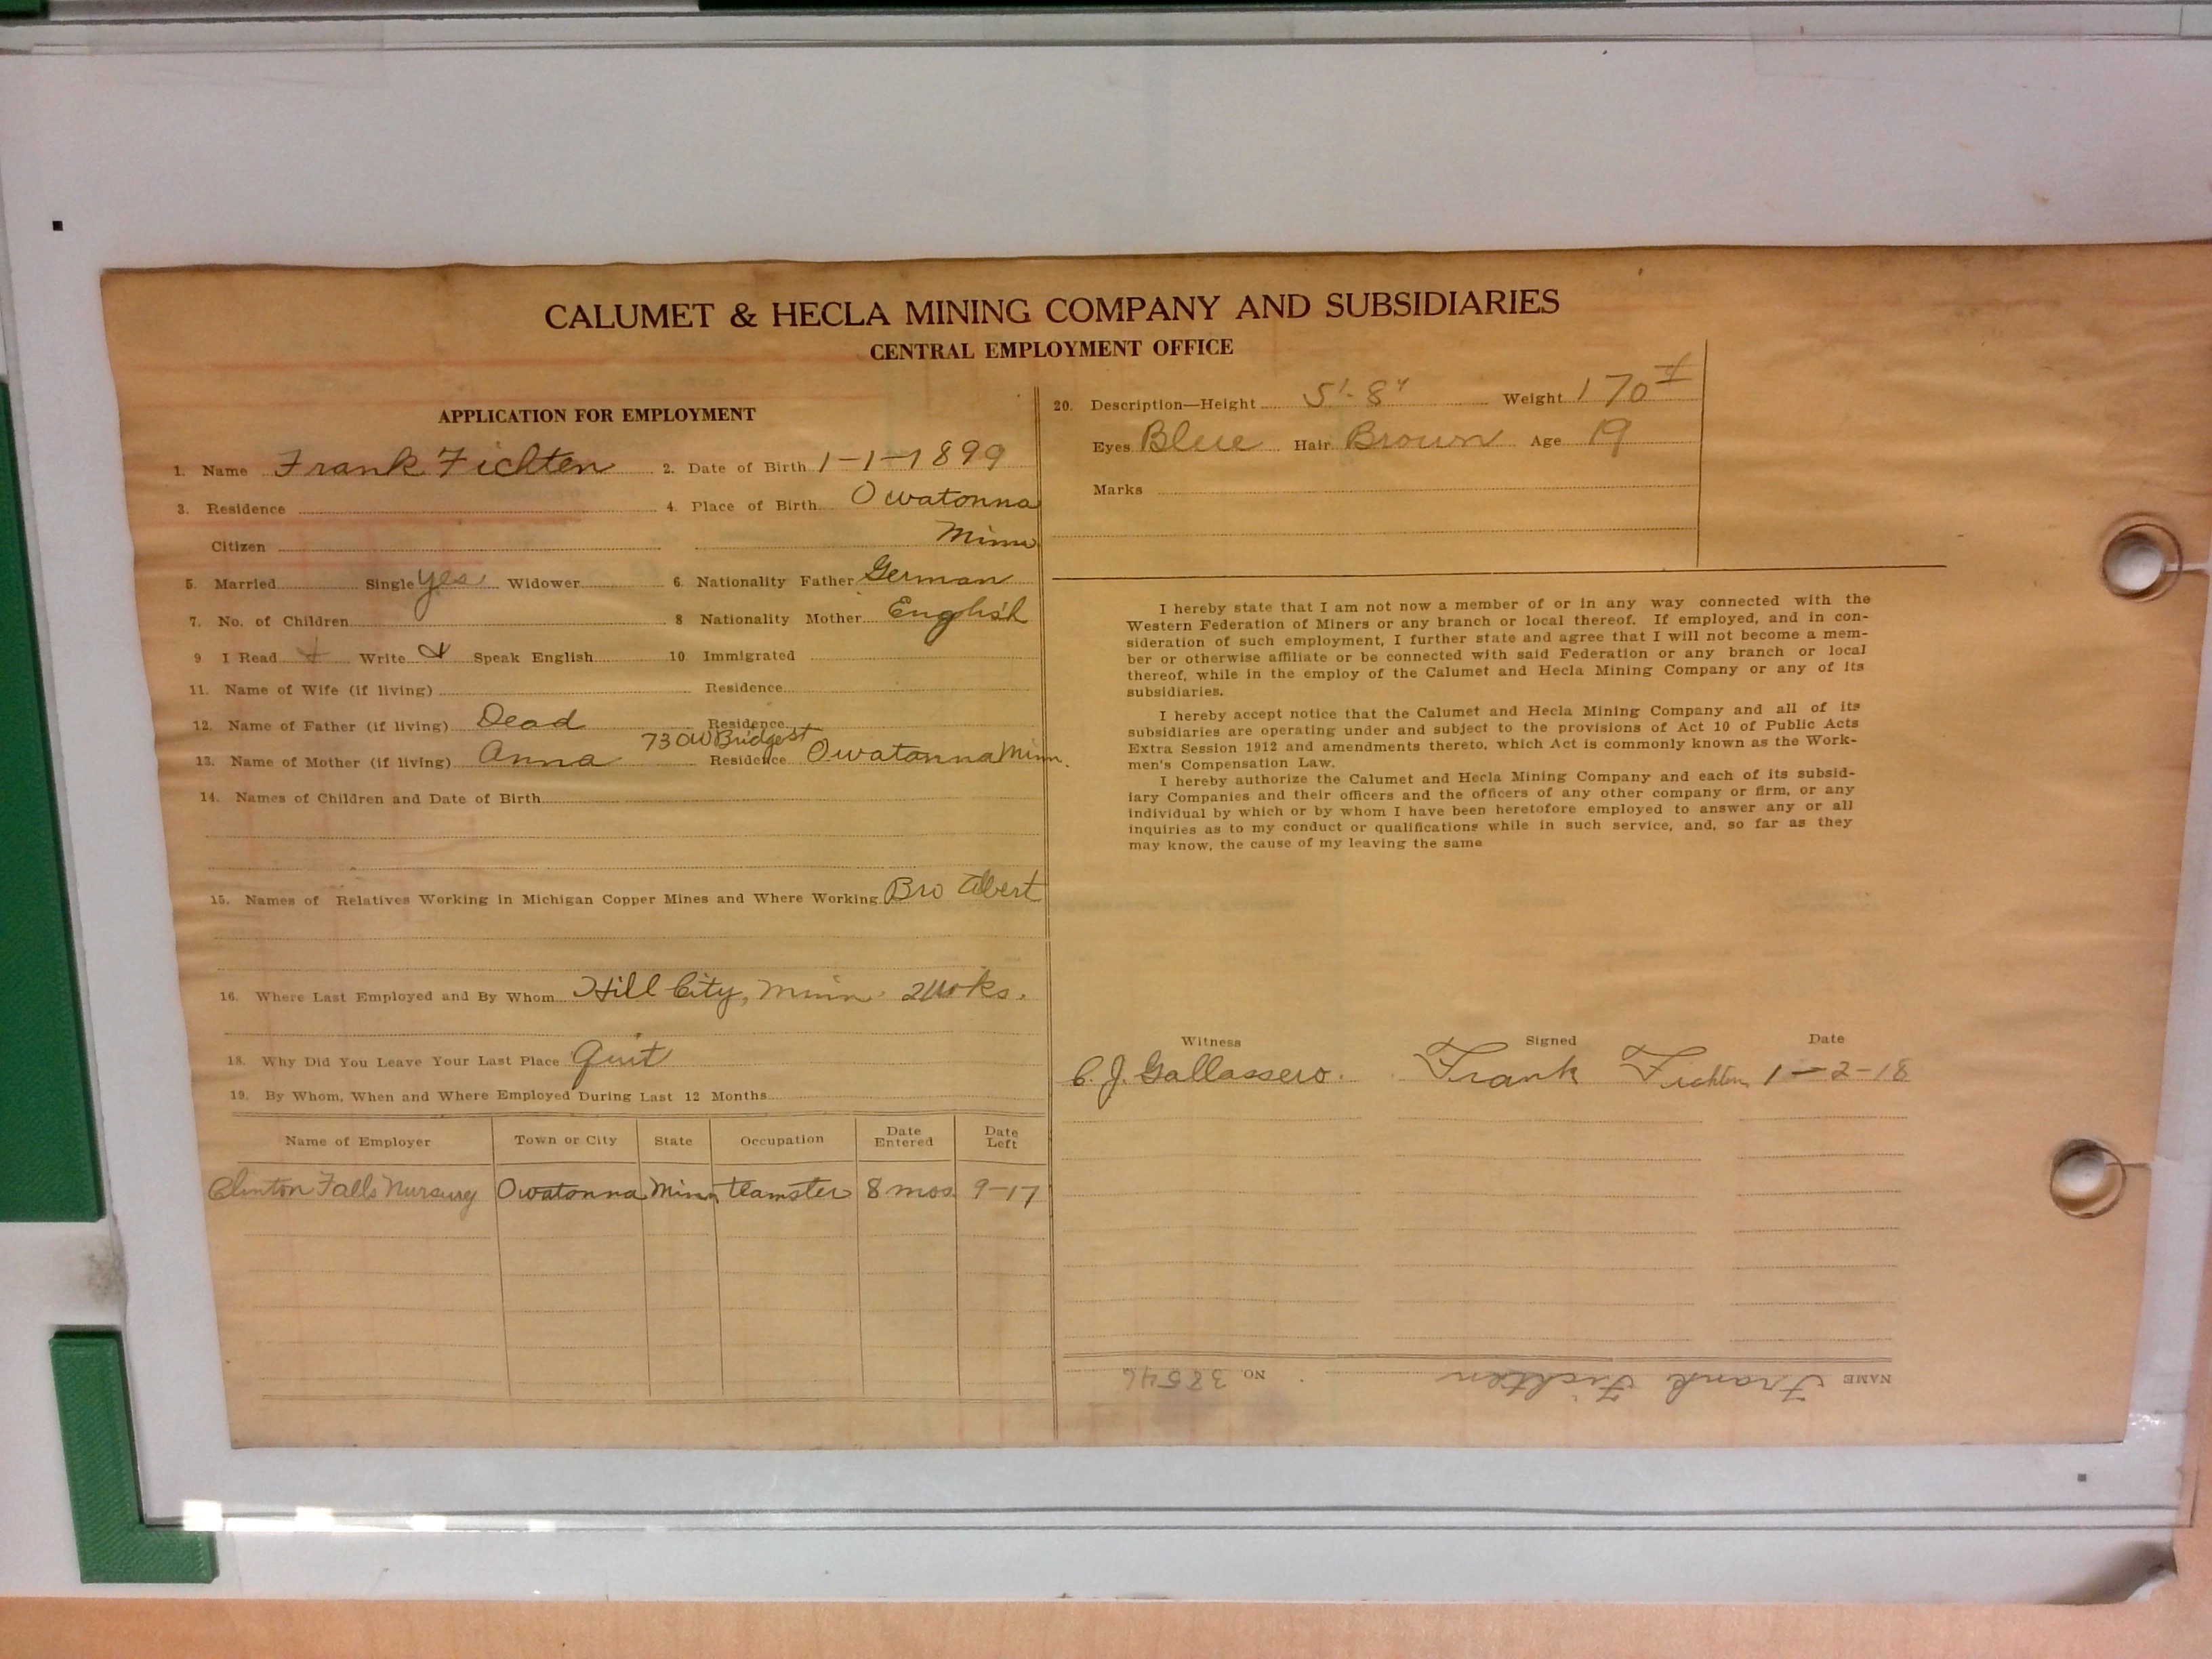 CALUMET & HECLA MINING COMPANY AND SUBSIDIARIES
CENTRAL EMPLOYMENT OFFICE
APPLICATION FOR EMPLOYMENT
1. Name Frank Fichten 2. Date of Birth 1-1-1899
3. Residence 4. Place of Birth Owatonna
Citizen Minn
5. Married Single yes Widower 6. Nationality Father German
7. No. of Children 8 Nationality Mother English
9 I Read Write Speak English 10. Immigrated
11. Name of Wife (if living) Residence
12. Name of Father (if living) Dead Residence
730 W Bridge st
13. Name of Mother (if living) Anna Residence Owatonna Minn.
14. Names of Children and Date of Birth
15. Names of Relatives Working in Michigan Copper Mines and Where Working Bro Albert
16. Where Last Employed and By Whom Hill City, Minn. 2 wks.
18. Why Did You Leave Your Last Place Quit
19. By Whom, When and Where Employed During Last 12 Months
Name of Employer Town or City State Occupation Date Entered Date Left
Clinton Falls Nursury Owatonna Minn teamster 8 mos 9-17
20. Description—Height 5'-8" Weight 170#
Eyes Blue Hair Brown Age 19
Marks
I hereby state that I am not now a member of or in any way connected with the
Western Federation of Miners or any branch or local thereof. If employed, and in con-
sideration of such employment, I further state and agree that I will not become a mem-
ber or otherwise affiliate or be connected with said Federation or any branch or local
thereof, while in the employ of the Calumet and Hecla Mining Company or any of its
subsidiaries.
I hereby accept notice that the Calumet and Hecla Mining Company and all of its
subsidiaries are operating under and subject to the provisions of Act 10 of Public Acts
Extra Session 1912 and amendments thereto, which Act is commonly known as the Work-
men's Compensation Law.
I hereby authorize the Calumet and Hecla Mining Company and each of its subsid-
iary Companies and their officers and the officers of any other company or firm, or any
individual by which or by whom I have been heretofore employed to answer any or all
inquiries as to my conduct or qualifications while in such service, and, so far as they
may know, the cause of my leaving the same
Witness Signed Date
C. J. Gallassero. Frank Fichten 1-2-18
NAME Frank Fichten NO. 38546